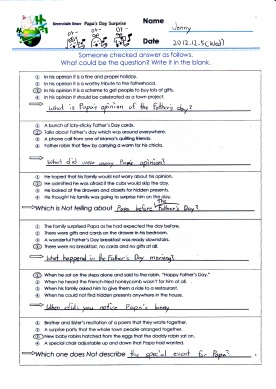 Berenstain Bears Papa's Day Surprise
Name Jenny
Date 2012.12.5(Wed)
Someone checked answer as follows.
What could be the question? Write it in the blank.
① In his opinion it is a fine and proper holiday.
② In his opinion it is a worthy tribute to the fatherhood.
③ In his opinion it is a scheme to get people to buy lots of gifts.
④ In his opinion it should be celebrated as a town project.
What is Papa's opinion of the Father's day?
① A bunch of icky-sticky Father's Day cards.
② Talks about Father's day which was around everywhere.
③ A phone call from one of Mama's quilting friends.
④ Father robin that flew by carrying a worm for his chicks.
What did Papa's opinion?
① He hoped that his family would not worry about his opinion.
② He admitted he was afraid if the cubs would skip the day.
③ He looked at the drawers and closets for hidden presents.
④ He thought his family was going to surprise him on the day.
Which is Not telling about Papa before The Father's Day?
① The family surprised Papa as he had expected the day before.
② There were gifts and cards on the drawer in his bedroom.
③ A wonderful Father's Day breakfast was ready downstairs.
④ There were no breakfast, no cards and no gifts at all.
What happend in the Father's Day morning?
① When he sat on the steps alone and said to the robin, "Happy Father's Day."
② When he heard the French-fried honeycomb wasn't for him at all.
③ When his family asked him to give them a ride to a restaurant.
④ When he could not find hidden presents anywhere in the house.
When did you notice Papa's
① Brother and Sister's recitation of a poem that they wrote together.
② A surprise party that the whole town people arranged together.
③ New baby robins hatched from the eggs that the daddy robin sat on.
④ A special chair adjustable up and down that Papa had wanted.
Which one does Not describe the special event for Papa?